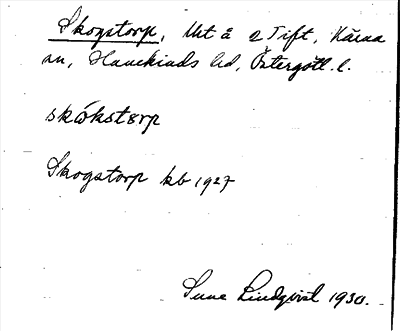 Skogstorp, Utt å 2 Tift, Kärna
sn, Hanekinds hd, Östergötl. l.
skókstərp
Skogstorp kb 1927
Sune Lindqvist 1930.